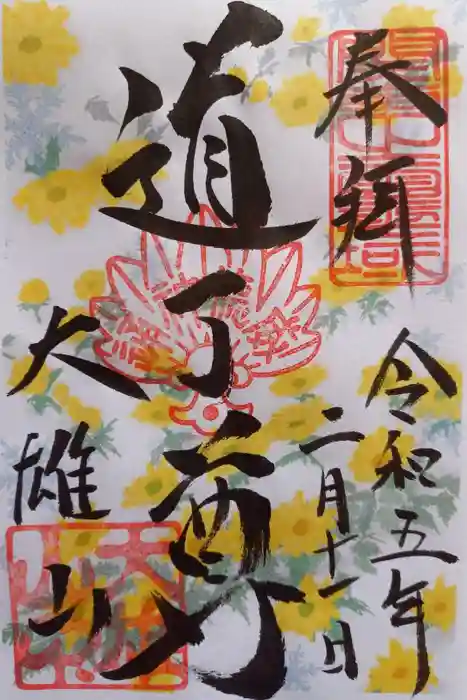 奉拜
令和五年
二月十一日
道了尊
大雄山